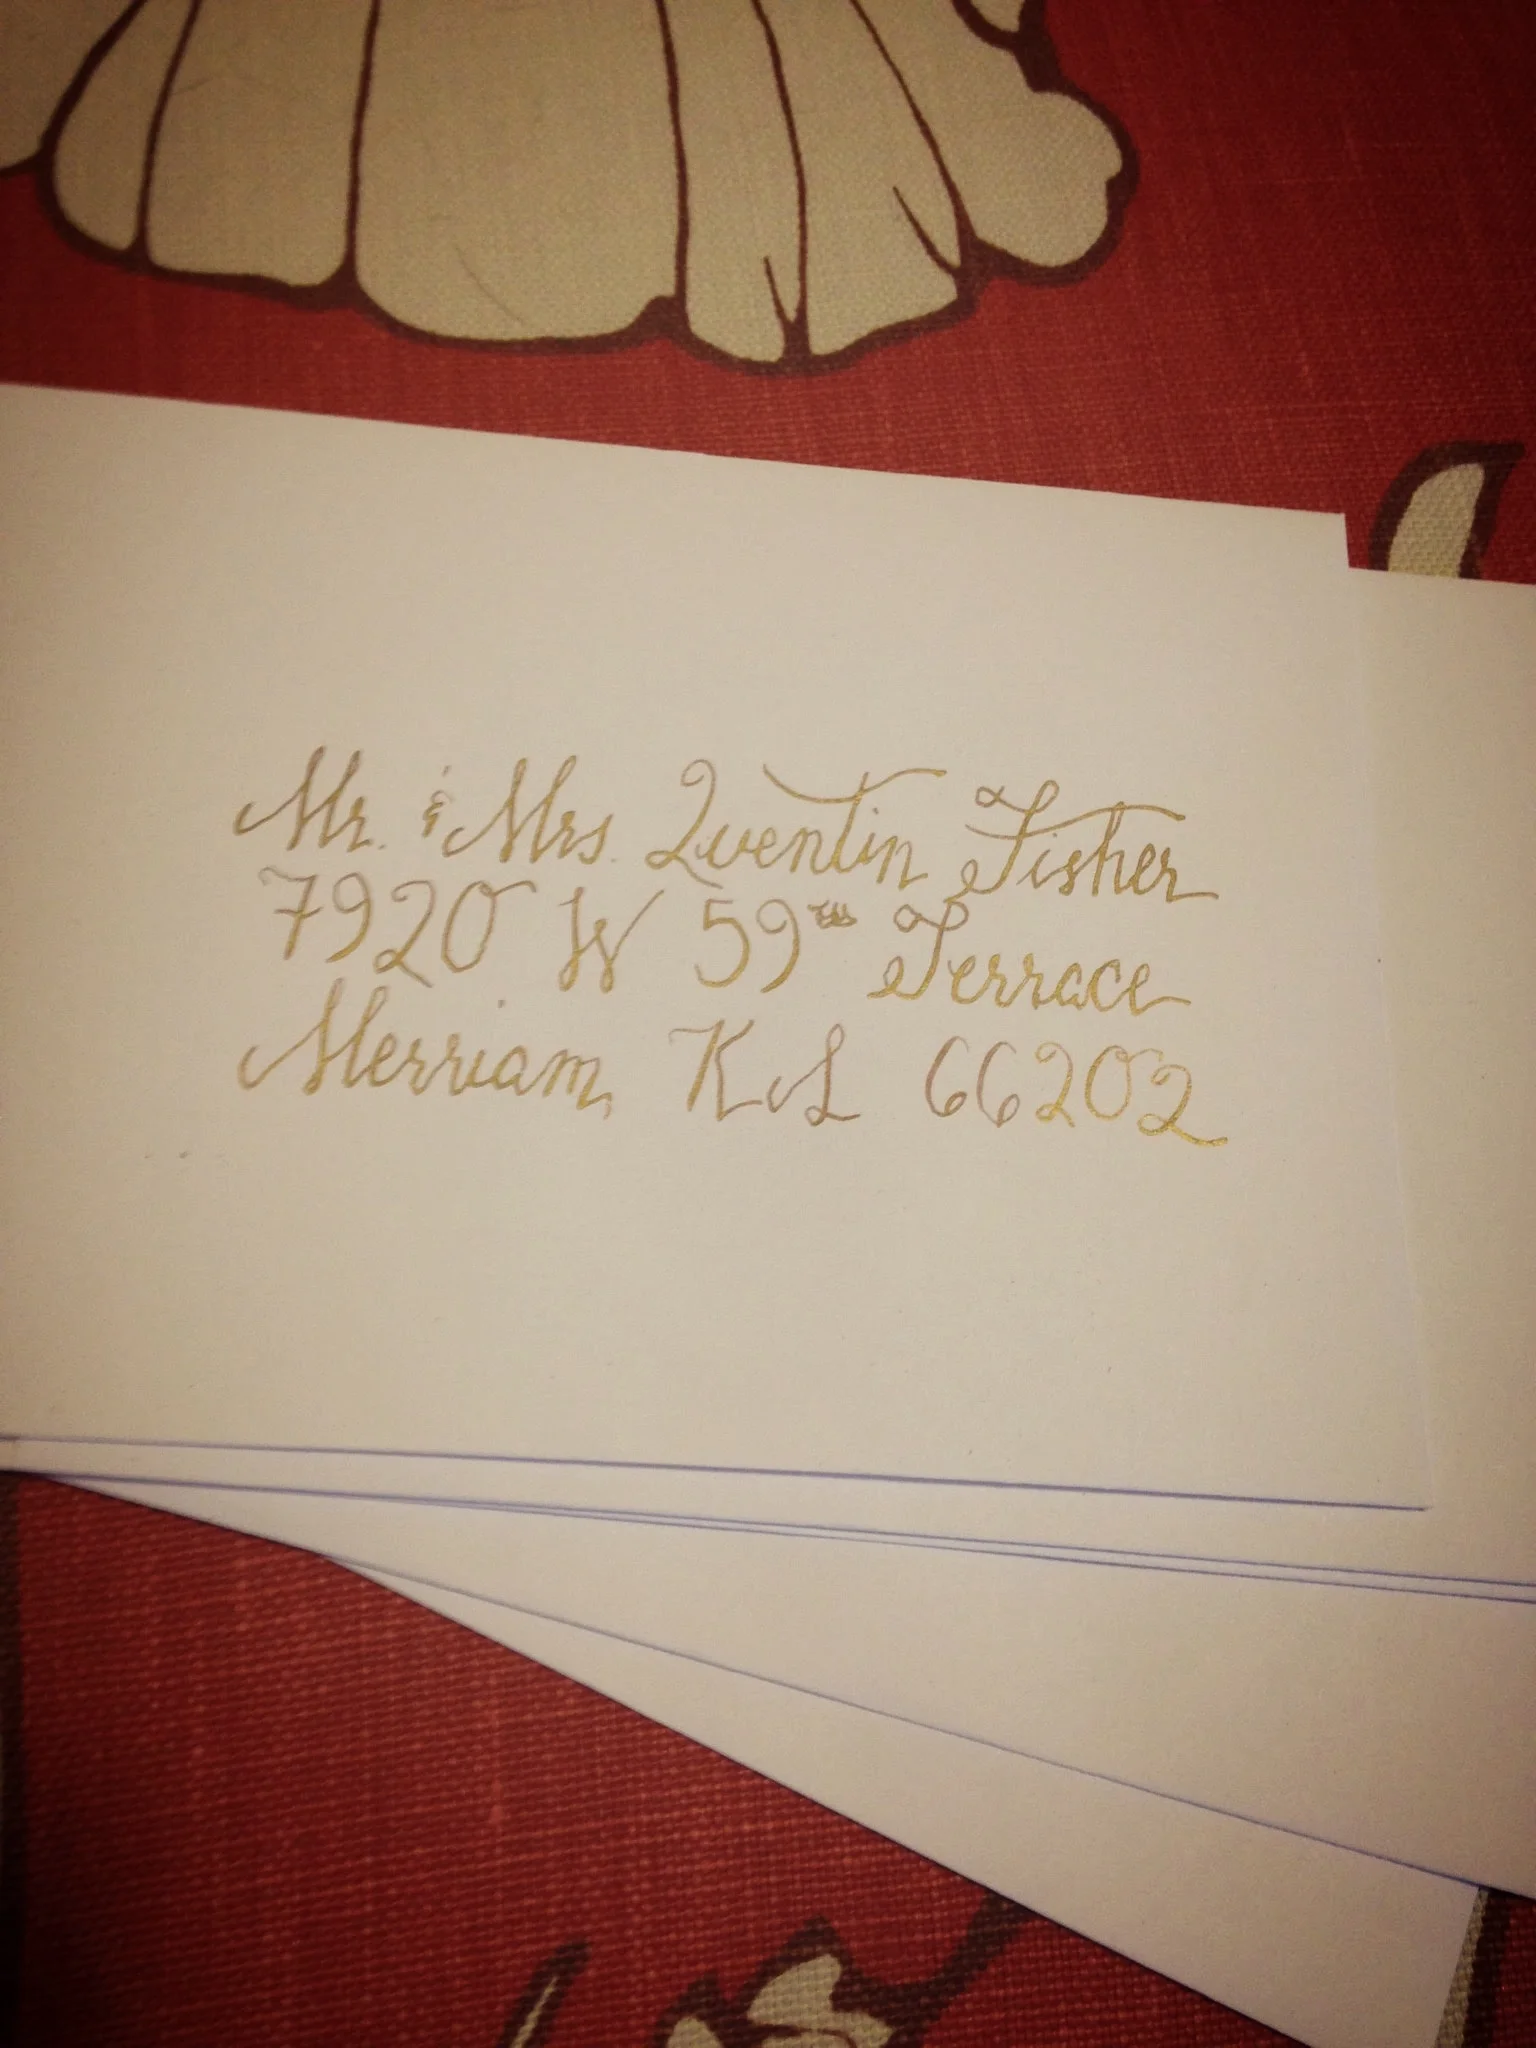 Mr. & Mrs. Quentin Fisher
7920 W 59th Terrace
Merriam, KS 66202